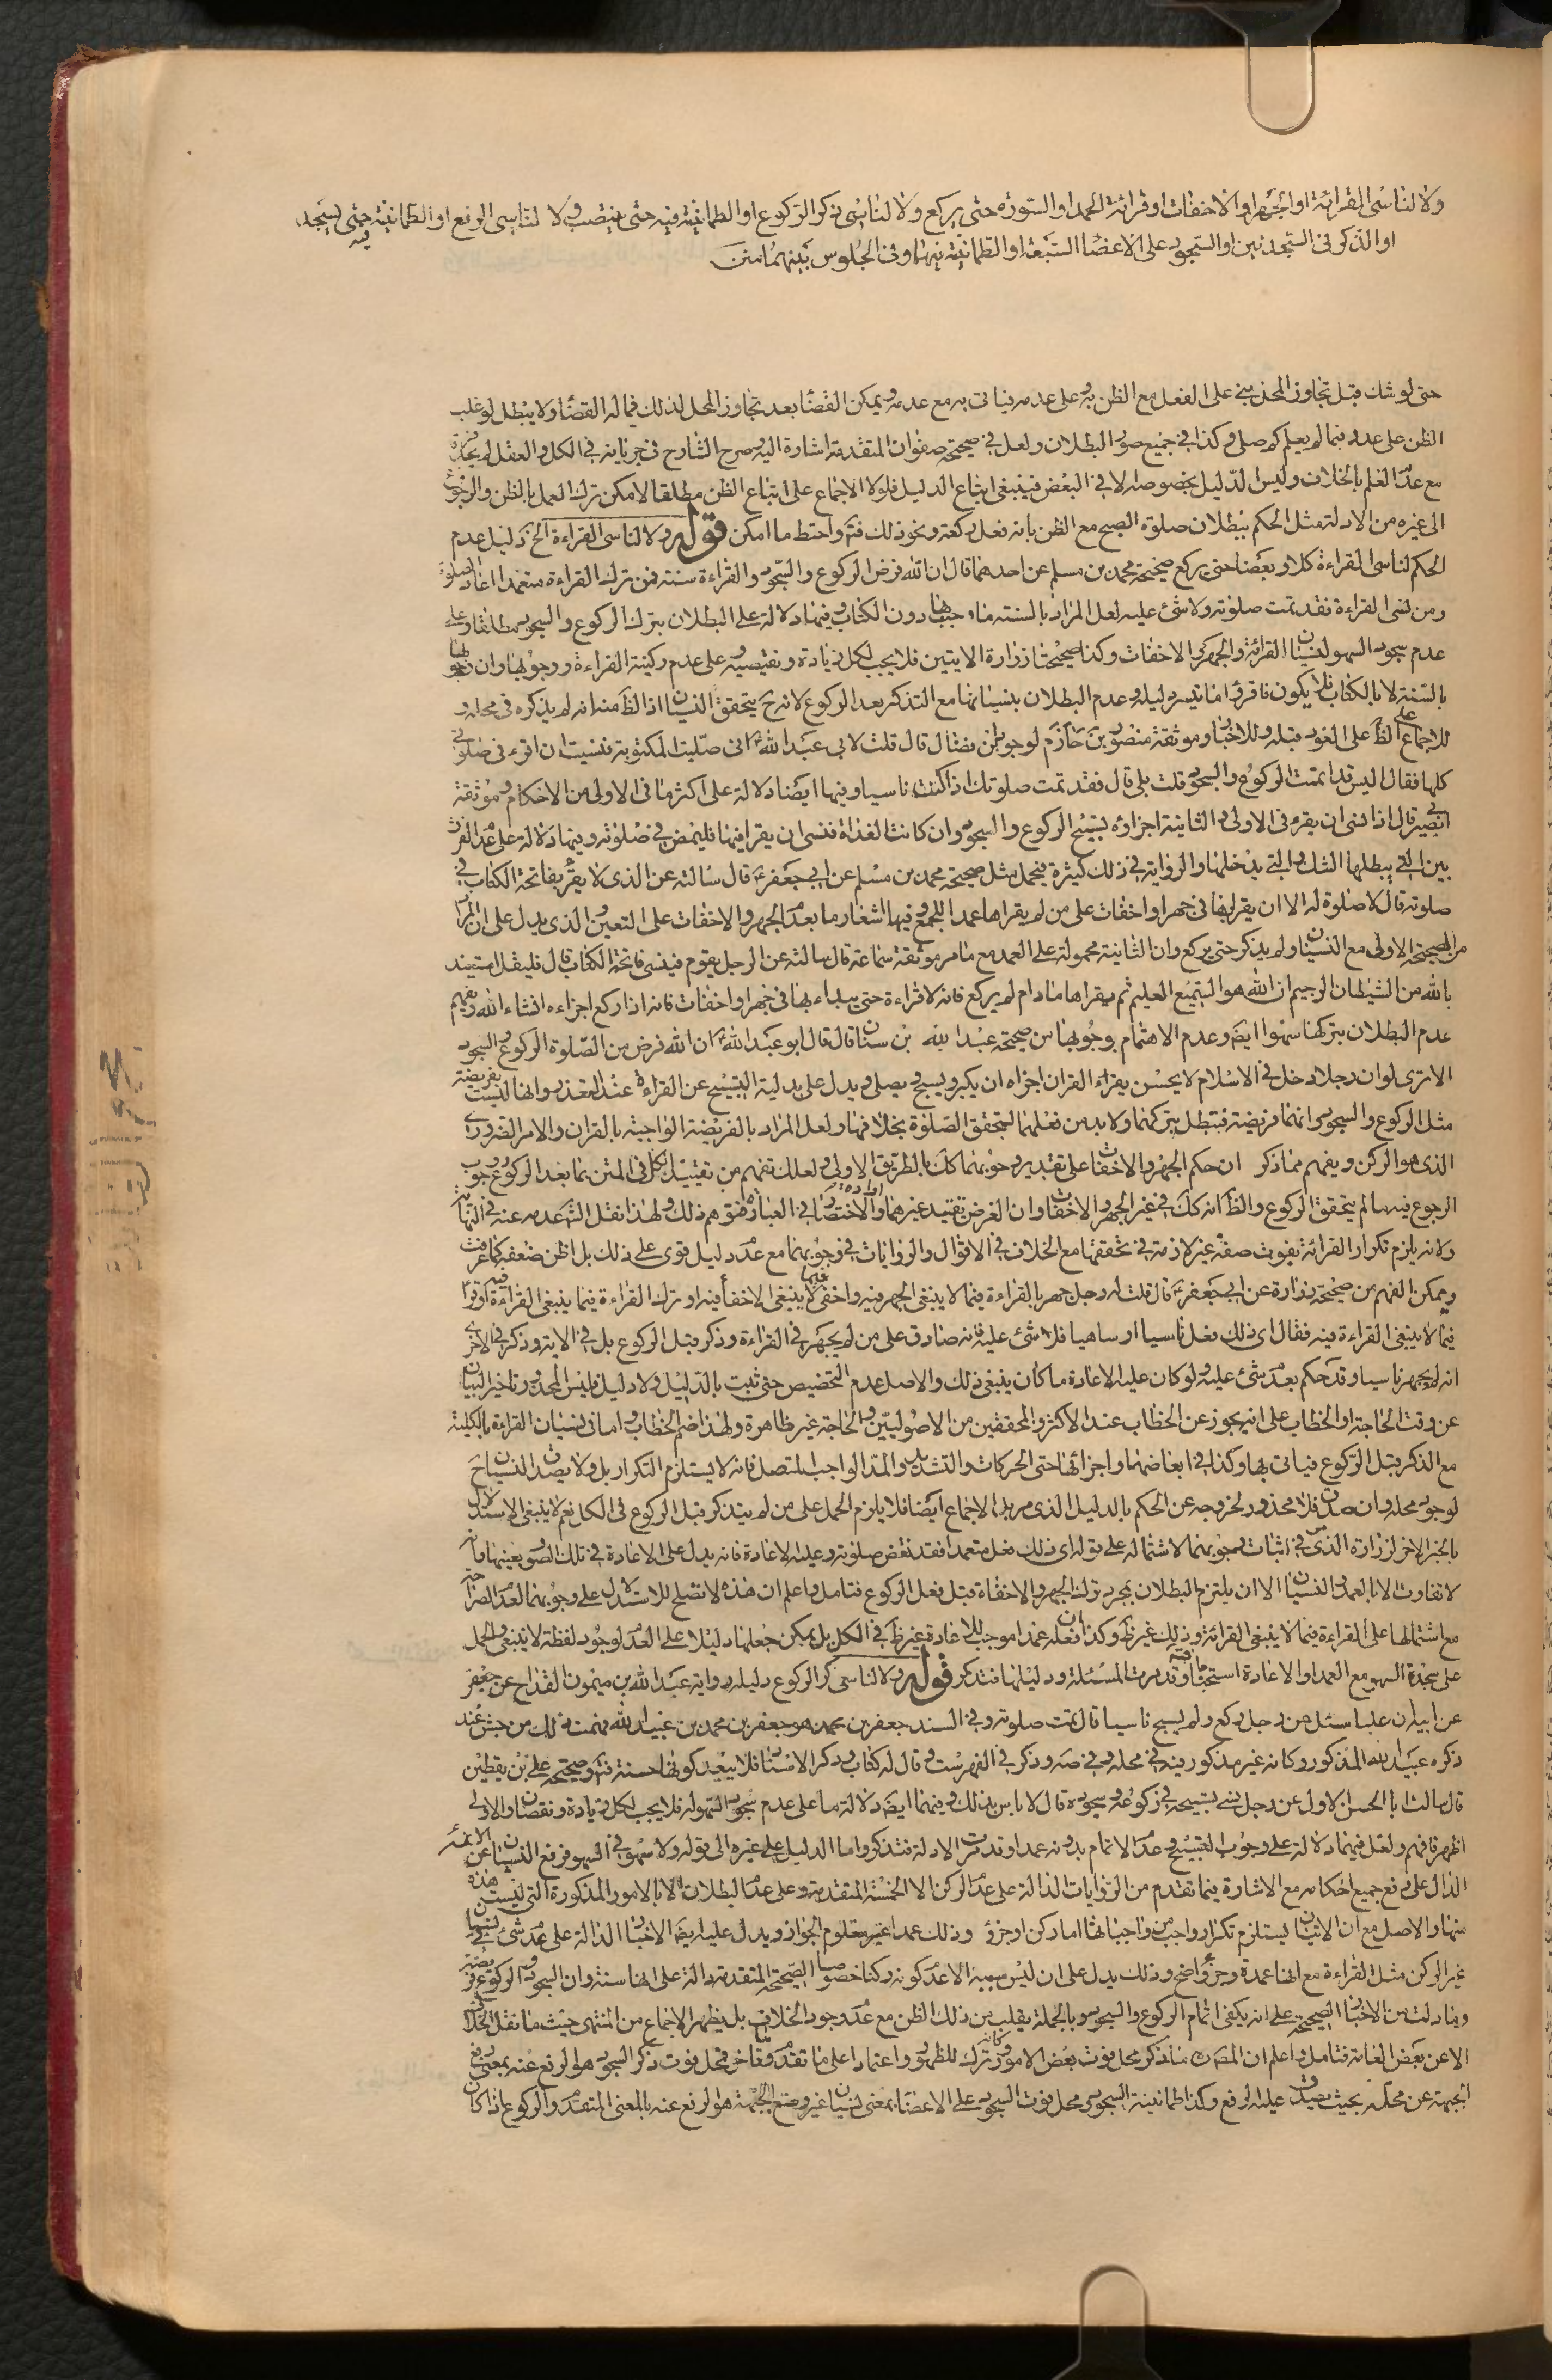 ولا لناسى القرائة او الجهر او الاخفات او قرائة الحمد او السورة حتى يركع ولا لناسى ذكر الركوع او الطمانينة فيه حتى ينتصب ولا لناسى الرفع او الطمانينة فيه حتى يسجد
او الذكر فى السجدتين او السجود على الاعضا السبعة او الطمانينة فيهما وفى الجلوس بينهما متن
حتى لو شك قبل تجاوز المحل بنى على الفعل مع الظن به وعلى عدمه فياتى به مع عدمه ويمكن القضا بعد تجاوز المحل لذلك فيما له القضا ولا يبطل لو غلب
الظن على عدده فيما لم يعلم كم صلى وكذا فى جميع صور البطلان ولعل فى صحيحة صفوان المتقدمة اشارة اليه وصرح الشارح فى جريانه فى الكل والعقل
مع عدم العلم بالخلاف وليس الدليل بخصوصه الا فى البعض فينبغى اتباع الدليل فلولا الاجماع على اتباع الظن مطلقا لامكن ترك العمل بالظن والرجوع
الى غيره من الادلة مثل الحكم ببطلان صلوة الصبح مع الظن بانه فعل ركعة ونحو ذلك فت واحتط ما امكن قوله ولا لناسى القراءة الخ دليل عدم
الحكم لناسى القراءة كلا وبعضا حتى يركع صحيحة محمد بن مسلم عن احدهما قال ان الله فرض الركوع والسجود والقراءة سنة فمن ترك القراءة متعمدا اعاد الصلوة
ومن نسى القراءة فقد تمت صلوته ولا شئ عليه لعل المراد بالسنة ما وجب بها دون الكتاب وفيها دلالة على البطلان بترك الركوع والسجود مطلقا وعلى
عدم سجود السهو لنسيان القرائة والجهر والاخفات وكذا صحيحتا زرارة الاتيتين فلا يجب لكل زيادة ونقيصة وعلى عدم ركنية القراءة ووجوبها وان وجوبها
بالسنة لا بالكتاب فلا يكون فاقرؤا ما تيسر دليله وعدم البطلان بنسيانها مع التذكر بعد الركوع لانه ح يتحقق النسيان اذ الظ منه انه لم يذكره فى محله و
للاجماع الظ على العود قبله وللاخبار وموثقة منصور بن حازم لوجود ابن فضال قال قلت لابى عبد الله ع انى صليت المكتوبة فنسيت ان اقرء فى صلوتى
كلها فقال اليس قد اتممت الركوع والسجود قلت بلى قال فقد تمت صلوتك اذا كنت ناسيا وفيها ايضا دلالة على اكثر ما فى الاولى من الاحكام وموثقة
ابى بصير قال اذا نسى ان يقرء فى الاولى والثانية اجزاؤه تسبيح الركوع والسجود وان كانت الغداة فنسى ان يقرا فيها فليمض فى صلوته وفيها دلالة على عدم الفرق
بين التى يبطلها الشك والتى يدخلها والرواية فى ذلك كثيرة فيحمل مثل صحيحة محمد بن مسلم عن ابى جعفر ع قال سالته عن الذى لا يقرء بفاتحة الكتاب فى
صلوته قال لا صلوة له الا ان يقرا بها فى جهر او اخفات على من لم يقراها عمدا للجمع وفيها اشعار ما بعدم الجهر والاخفات على التعيين الذى يدل على ان المراد
من الصحيحة الاولى مع النسيان ولم يذكر حتى يركع وان الثانية محمولة على العمد مع ما مر موثقة سماعة قال سالته عن الرجل يقوم فينسى فاتحة الكتاب قال فليقل استعيذ
بالله من الشيطان الرجيم ان الله هو السميع العليم ثم يقراها ما دام لم يركع فانه لا قراءة حتى يبداء بها فى جهر او اخفات فانه اذا ركع اجزاءه انشاء الله ويفهم
عدم البطلان بتركها سهوا ايضا وعدم الاهتمام بوجوبها من صحيحة عبد الله بن سنان قال قال ابو عبد الله ع ان الله فرض من الصلوة الركوع والسجود
الا ترى لو ان رجلا دخل فى الاسلام لا يحسن يقراء القران اجزاه ان يكبر ويسبح ويصلى ويدل على بدلية التسبيح عن القراءة عند التعذر وانها ليست بفريضة
مثل الركوع والسجود وانهما فريضة فتبطل بتركهما ولا بد من فعلهما لتحقق الصلوة بخلافها ولعل المراد بالفريضة الواجبة بالقران والامر الضرورى
الذى هو الركن ويفهم مما ذكر ان حكم الجهر والاخفات على تقدير وجوبهما كك بالطريق الاولى ولعلك تفهم من تقييد الكل فى المتن بما بعد الركوع وجوب
الرجوع فيهما لم يتحقق الركوع والظ انه كك فى غير الجهر والاخفات وان الغرض تقييد غيرهما والاختصار فى العبارة فتوهم ذلك ولهذا نقل الش عدمه عنه فى النهاية
ولانه يلزم تكرار القرائة بفوت صفة غير لازمة فى تحققها مع الخلاف فى الاقوال والروايات فى وجوبهما مع عدم دليل قوى على ذلك بل اظن ضعفه كما عرفت
ويمكن الفهم من صحيحة زرارة عن ابى جعفر ع قال قلت له رجل جهر بالقراءة فيما لا ينبغى الجهر فيه واخفى فيما لا ينبغى الاخفاء فيه او ترك القراءة فيما ينبغى القراءة فيه او قرا
فيما لا ينبغى القراءة فيه فقال اى ذلك فعل ناسيا او ساهيا فلا شئ عليه فانه صادق على من لم يجهر فى القراءة وذكر قبل الركوع بل فى الاية وذكر فى الاخرى
انه لم يجهر ناسيا وقد حكم بعدم شئ عليه ولو كان عليه الاعادة ما كان ينبغى ذلك والاصل عدم التخصيص حتى ثبت بالدليل ولا دليل فليس المحذور تاخير البيان
عن وقت الحاجة او الخطاب على انه يجوز عن الخطاب عند الاكثر والمحققين من الاصوليين والحاجة غير ظاهرة ولهذا ضم الخطاب واما فى نسيان القراءة بالكلية
مع الذكر قبل الركوع فياتى بها وكذا فى ابعاضها واجزائها حتى الحركات والتشديد والمد الواجب المتصل فانه لا يستلزم التكرار بل ولا يصدق النسيان ح
لوجود محله وان صدق فلا محذور لخروجه عن الحكم بالدليل الذى مر بل الاجماع ايضا فلا يلزم الحمل على من لم يتذكر قبل الركوع فى الكل نعم لا ينبغى الاستدلال
بالخبر الاخر لزرارة الذى فى اثبات وجوبهما لاشتماله على قوله اى ذلك فعل متعمدا فقد نقض صلوته وعليه الاعادة فانه يدل على الاعادة فى تلك الصور بعينها فانه
لا تفاوت الا بالعمد والنسيان الا ان يلتزم البطلان بمجرد ترك الجهر والاخفاء قبل فعل الركوع فتامل واعلم ان هذه لا تصلح للاستدلال على وجوبهما لعدم الصراحة
مع اشتمالها على القراءة فيما لا ينبغى القرائة وذلك غير ظ وكذا ان فعله عمدا موجب للاعادة غير ظ فى الكل بل يمكن جعلها دليلا على العدم لوجود لفظة لا ينبغى والحمل
على سجدة السهو مع العمد او الاعادة استحبابا وقد مرت المسئلة ودليلها فتذكر قوله ولا لناسى ذكر الركوع دليله رواية عبد الله بن ميمون القداح عن جعفر
عن ابيه ان عليا سئل عن رجل ركع ولم يسبح ناسيا قال تمت صلوته وفى السند جعفر بن محمد هو جعفر بن محمد بن عبيد الله فهمت ذلك من حيث عند
ذكره عبيد الله المذكور وكانه غير مذكور فيه فى محله وفى صه وذكر فى الفهرست وقال له كتاب وذكر الاسناد فلا يبعد كونها حسنة فت وصحيحة على بن يقطين
قال سالت ابا الحسن الاول عن رجل نسى تسبيحه فى ركوعه وسجوده قال لا باس بذلك وفيهما ايضا دلالة ما على عدم سجود السهو له فلا يجب لكل زيادة ونقصان والاولى
اظهر فافهم ولعل فيهما دلالة على وجوب التسبيح وعدم الاتمام بدونه عمدا وقد مرت الادلة فتذكر واما الدليل على غيره الى قوله ولا سهو فى السهو فرفع النسيان عن الامة
الدال على رفع جميع احكامه مع الاشارة فيما تقدم من الروايات الدالة على عدم الركن الا الخمسة المتقدمة وعلى عدم البطلان الا بالامور المذكورة التى ليست هذه
منها والاصل مع ان الاتيان يستلزم تكرار واجب من واجباتها اما ركن او جزؤه وذلك عمدا غير معلوم الجواز ويدل عليه ايضا الاخبار الدالة على عدم شئ فى نسيان
غير الركن مثل القراءة مع انها عمدة وجزؤ واضح وذلك يدل على ان ليس سببه الا عدم كونه ركنا خصوصا الصحيحة المتقدمة دالة على انها سنة وان السجود والركوع فريضة
وما دلت من الاخبار الصحيحة على انه يكفى اتمام الركوع والسجود وبالجملة يغلب من ذلك الظن مع عدم وجود الخلاف بل يظهر الاجماع من المنتهى حيث ما نقل الخلاف
الا عن بعض العامة فتامل واعلم ان المصنف ما ذكر محل فوت بعض الامور وكانه ترك للظهور واعتمادا على ما تقدم وتاخر فمحل فوت ذكر السجود هو الرفع عنه بمعنى رفع
الجبهة عن محله بحيث يصدق عليه الرفع وكذا طمانينة السجود ومحل فوت السجود على الاعضا بمعنى نسيان غير وضع الجبهة هو الرفع عنه بالمعنى المتقدم والركوع اذا كان